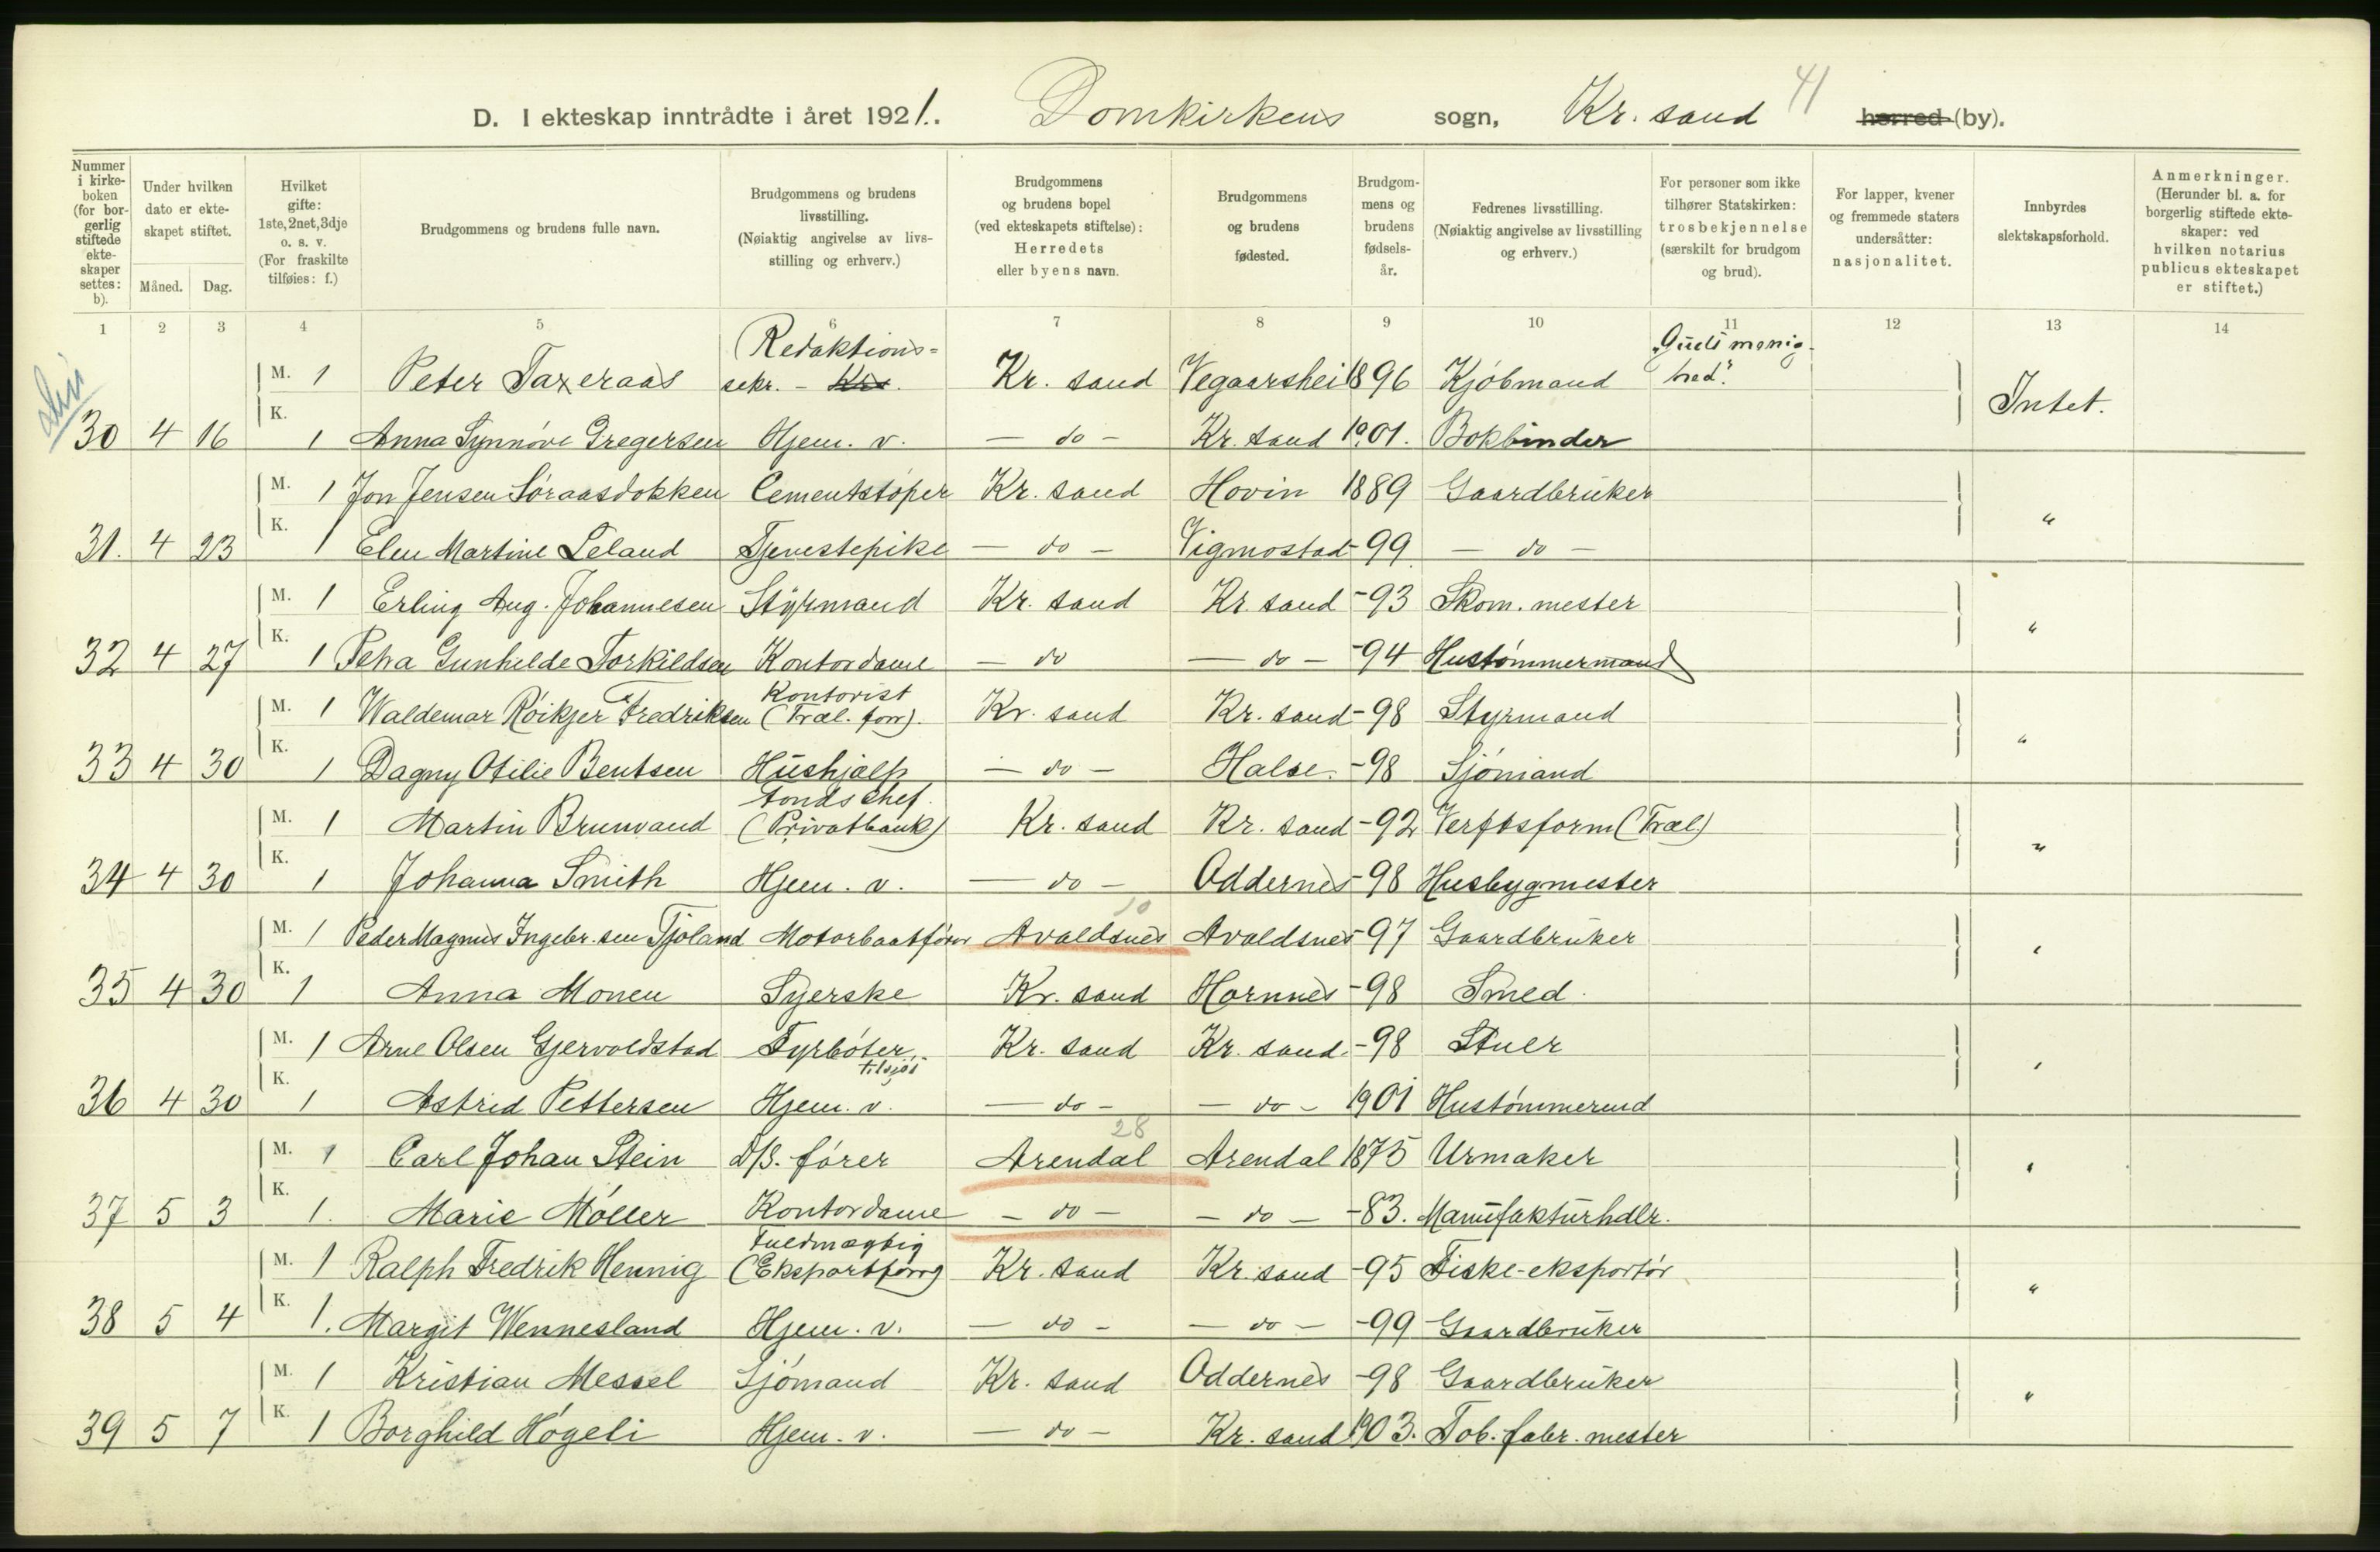 D. I ekteskap inntrådte i året 1921. Domkirkens sogn, Kr. sand 41 herred (by).
Nummer i kirkeboken (for borgerlig stiftede ekteskaper settes: b).
Under hvilken dato er ekteskapet stiftet.
Måned. Dag.
Hvilket gifte: 1ste, 2net, 3dje o. s. v. (For fraskilte tilføies: f.)
Brudgommens og brudens fulle navn.
Brudgommens og brudens livsstilling. (Nøiaktig angivelse av livsstilling og erhverv.)
Brudgommens og brudens bopel (ved ekteskapets stiftelse): Herredets eller byens navn.
Brudgommens og brudens fødested.
Brudgommens og brudens fødselsår.
Fedrenes livsstilling. (Nøiaktig angivelse av livsstilling og erhverv.)
For personer som ikke tilhører Statskirken: trosbekjennelse (særskilt for brudgom og brud).
For lapper, kvener og fremmede staters undersåtter: nasjonalitet.
Innbyrdes slektskapsforhold.
Anmerkninger. (Herunder bl. a. for borgerlig stiftede ekteskaper: ved hvilken notarius publicus ekteskapet er stiftet.)
1 2 3 4 5 6 7 8 9 10 11 12 13 14
M. 1 Peter Taxeraas Redaktions= sekr. - Krs. Kr. sand Vegaarshei 1896 Kjöbmand "Guds menig- hed". Intet.
30 4 16 K. 1 Anna Synnöve Gregersen Hjem. v. - do - Kr. sand 1901. Bokbinder
M. 1 Jon Jensen Söraasdokken Cementstöper Kr. sand Hovin 1889 Gaardbruker "
31. 4 23 K. 1 Elen Martine Leland Tjenestepike - do - Vigmostad - 99 - do -
M. 1 Erling Aug. Johannesen Styrmand Kr. sand Kr. sand - 93 Skom. mester "
32 4 27 K. 1 Petra Gunhilde Torkildsen Kontordame - do - do - - 94 Hustömmermand
M. 1 Waldemar Röikjer Fredriksen Kontorist (Træl. forr). Kr. sand Kr. sand - 98 Styrmand "
33 4 30 K. 1 Dagny Otilie Bentsen Hushjælp - do - Halse. - 98 Sjömand
M. 1 Martin Brunvand Fondschef. (Privatbank) Kr. sand Kr. sand - 92 Verftsform (Træl) "
34 4 30 K. 1 Johanna Smith Hjem. v. - do - Oddernes - 98 Husbygmester
M. 1 Peder Magnus Ingebr.sen Tjöland Motorbaatförer 10 Avaldsnes Avaldsnes - 97 Gaardbruker "
35 4 30 K. 1 Anna Monen Syerske Kr. sand Hornnes - 98 Smed.
M. 1 Arne Olsen Gjervoldstad Fyrböter, tilsjös Kr. sand Kr. sand. - 98 Stuer "
36 4 30 K. 1 Astrid Pettersen Hjem. v. - do - - do - 1901 Hustömmermd
M. 1 Carl Johan Stein D/S. förer 28 Arendal Arendal 1875 Urmaker "
37 5 3 K. 1. Marie Möller Kontordame - do - - do - - 83. Manufakturhdlr.
M. 1 Ralph Fredrik Hennig Fuldmægtig (Eksportforr) Kr. sand Kr. sand - 95 Fiske-eksportör "
38 5 4 K. 1. Margit Wennesland Hjem. v. - do - - do - - 99 Gaardbruker
M. 1 Kristian Messel Sjömand Kr. sand Oddernes - 98 Gaardbruker "
39 5 7 K. 1 Borghild Högeli Hjem. v. - do - Kr. sand 1903. Tob. fabr. mester